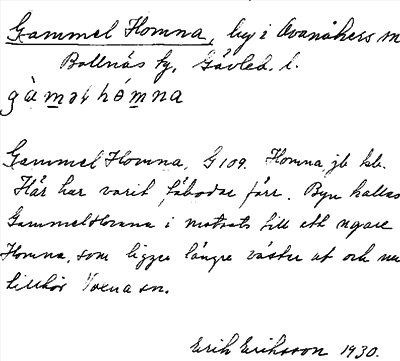 Gammel Homna, by i Ovanåkers sn
Bollnäs fg, Gävleb. l.
gàməl hómna
Gammel Homna, G 109. Homna jb kb.
Här har varit fäbodar förr. Byn kallas
Gammelhomna i motsats till ett nyare
Homna, som ligger längre väster ut och nu
tillhör Voxna sn.
Erik Eriksson 1930.